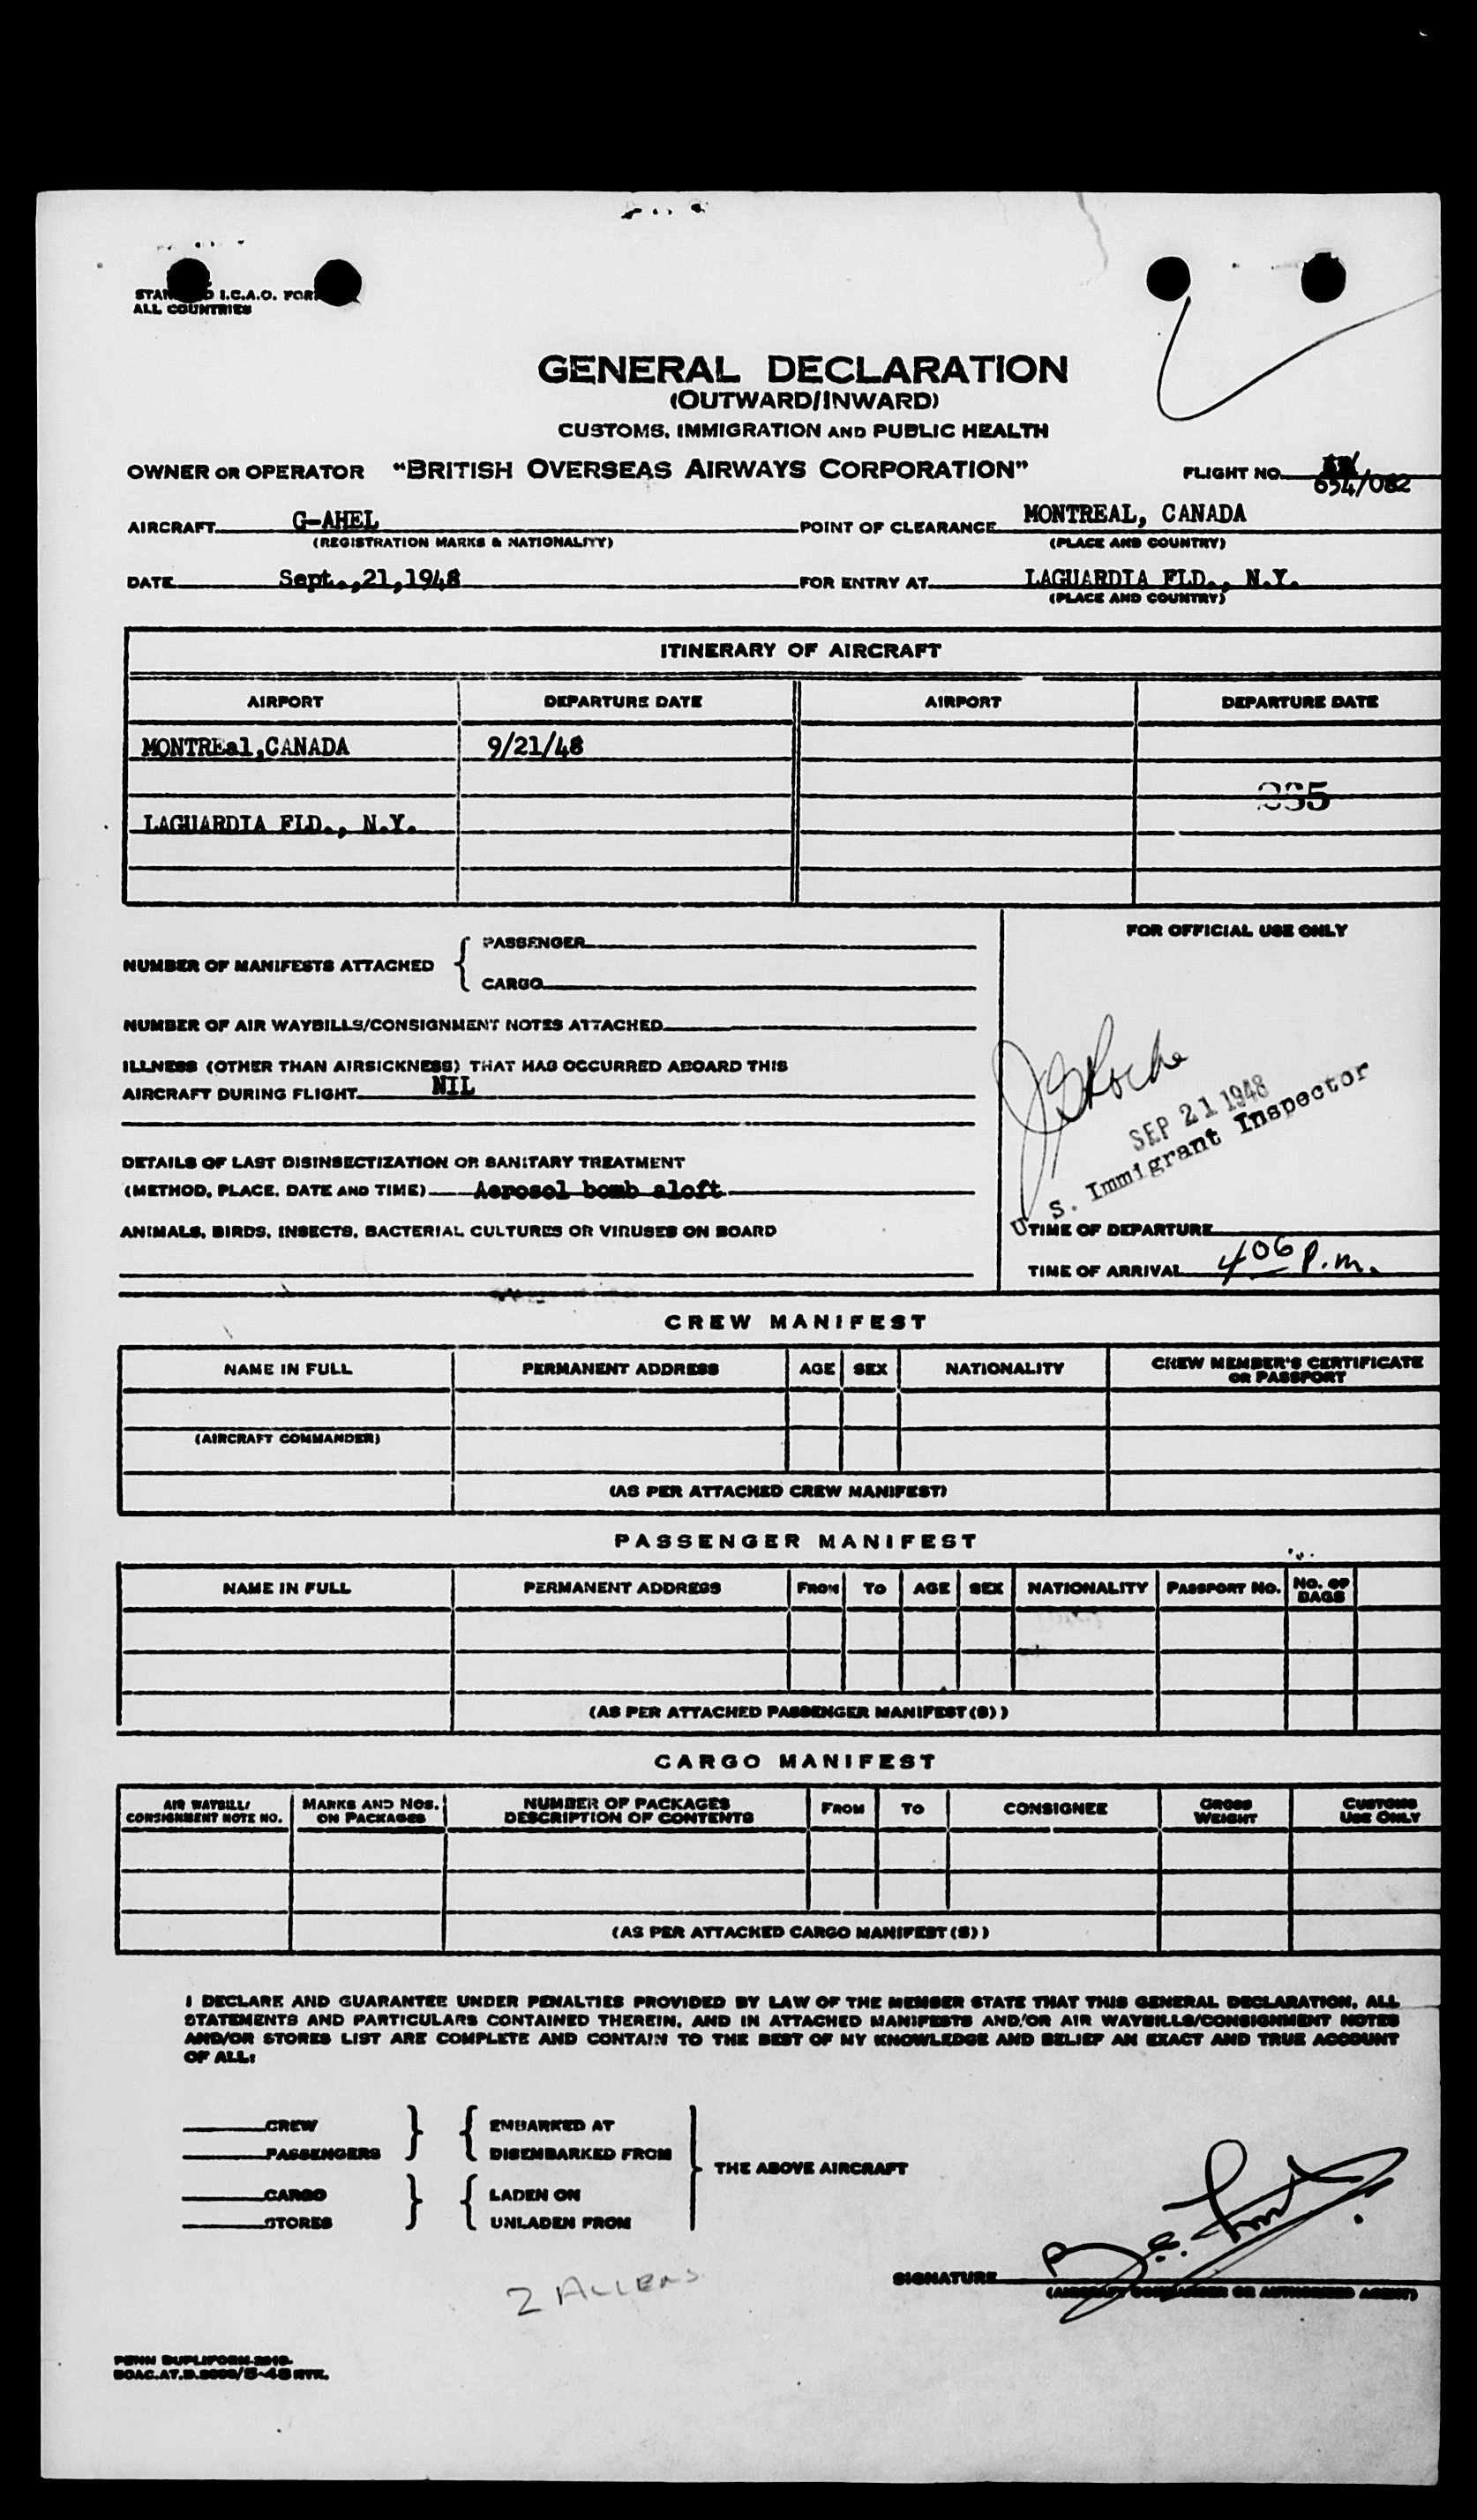 I.C.A.O.
ALL COUNTRIES
GENERAL DECLARATION
(OUTWARD/INWARD)
CUSTOMS, IMMIGRATION AND PUBLIC HEALTH
OWNER OR OPERATOR "BRITISH OVERSEAS AIRWAYS CORPORATION" FLIGHT NO.
654/082
AIRCRAFT G-AHEL POINT OF CLEARANCE MONTREAL, CANADA
(REGISTRATION MARKS & NATIONALITY) (PLACE AND COUNTRY)
DATE Sept.,21,1948 FOR ENTRY AT LAGUARDIA FLD., N.Y.
(PLACE AND COUNTRY)
ITINERARY OF AIRCRAFT
AIRPORT DEPARTURE DATE AIRPORT DEPARTURE DATE
MONTREal,CANADA 9/21/48
LAGUARDIA FLD., N.Y.
FOR OFFICIAL USE ONLY
NUMBER OF MANIFESTS ATTACHED { PASSENGER
CARGO
NUMBER OF AIR WAYBILLS/CONSIGNMENT NOTES ATTACHED
ILLNESS (OTHER THAN AIRSICKNESS) THAT HAS OCCURRED ABOARD THIS
AIRCRAFT DURING FLIGHT NIL
SEP 21 1948
U. S. Immigrant Inspector
DETAILS OF LAST DISINSECTIZATION OR SANITARY TREATMENT
(METHOD, PLACE, DATE AND TIME) Aerosol bomb aloft
ANIMALS, BIRDS, INSECTS, BACTERIAL CULTURES OR VIRUSES ON BOARD
TIME OF DEPARTURE
TIME OF ARRIVAL 406 P.m.
CREW MANIFEST
NAME IN FULL PERMANENT ADDRESS AGE SEX NATIONALITY CREW MEMBER'S CERTIFICATE
OR PASSPORT
(AIRCRAFT COMMANDER)
(AS PER ATTACHED CREW MANIFEST)
PASSENGER MANIFEST
NAME IN FULL PERMANENT ADDRESS FROM TO AGE SEX NATIONALITY PASSPORT NO. NO. OF
BAGS
(AS PER ATTACHED PASSENGER MANIFEST(S))
CARGO MANIFEST
AIR WAYBILL/ MARKS AND NOS. NUMBER OF PACKAGES FROM TO CONSIGNEE GROSS CUSTOMS
CONSIGNMENT NOTE NO. ON PACKAGES DESCRIPTION OF CONTENTS WEIGHT USE ONLY
(AS PER ATTACHED CARGO MANIFEST(S))
I DECLARE AND GUARANTEE UNDER PENALTIES PROVIDED BY LAW OF THE MEMBER STATE THAT THIS GENERAL DECLARATION, ALL
STATEMENTS AND PARTICULARS CONTAINED THEREIN, AND IN ATTACHED MANIFESTS AND/OR AIR WAYBILLS/CONSIGNMENT NOTES
AND/OR STORES LIST ARE COMPLETE AND CONTAIN TO THE BEST OF MY KNOWLEDGE AND BELIEF AN EXACT AND TRUE ACCOUNT
OF ALL:
CREW EMBARKED AT
PASSENGERS DISEMBARKED FROM
THE ABOVE AIRCRAFT
CARGO LADEN ON
STORES UNLADEN FROM
SIGNATURE
(AIRCRAFT COMMANDER OR AUTHORIZED AGENT)
2 ALIENS
PENN DUPLIFORM